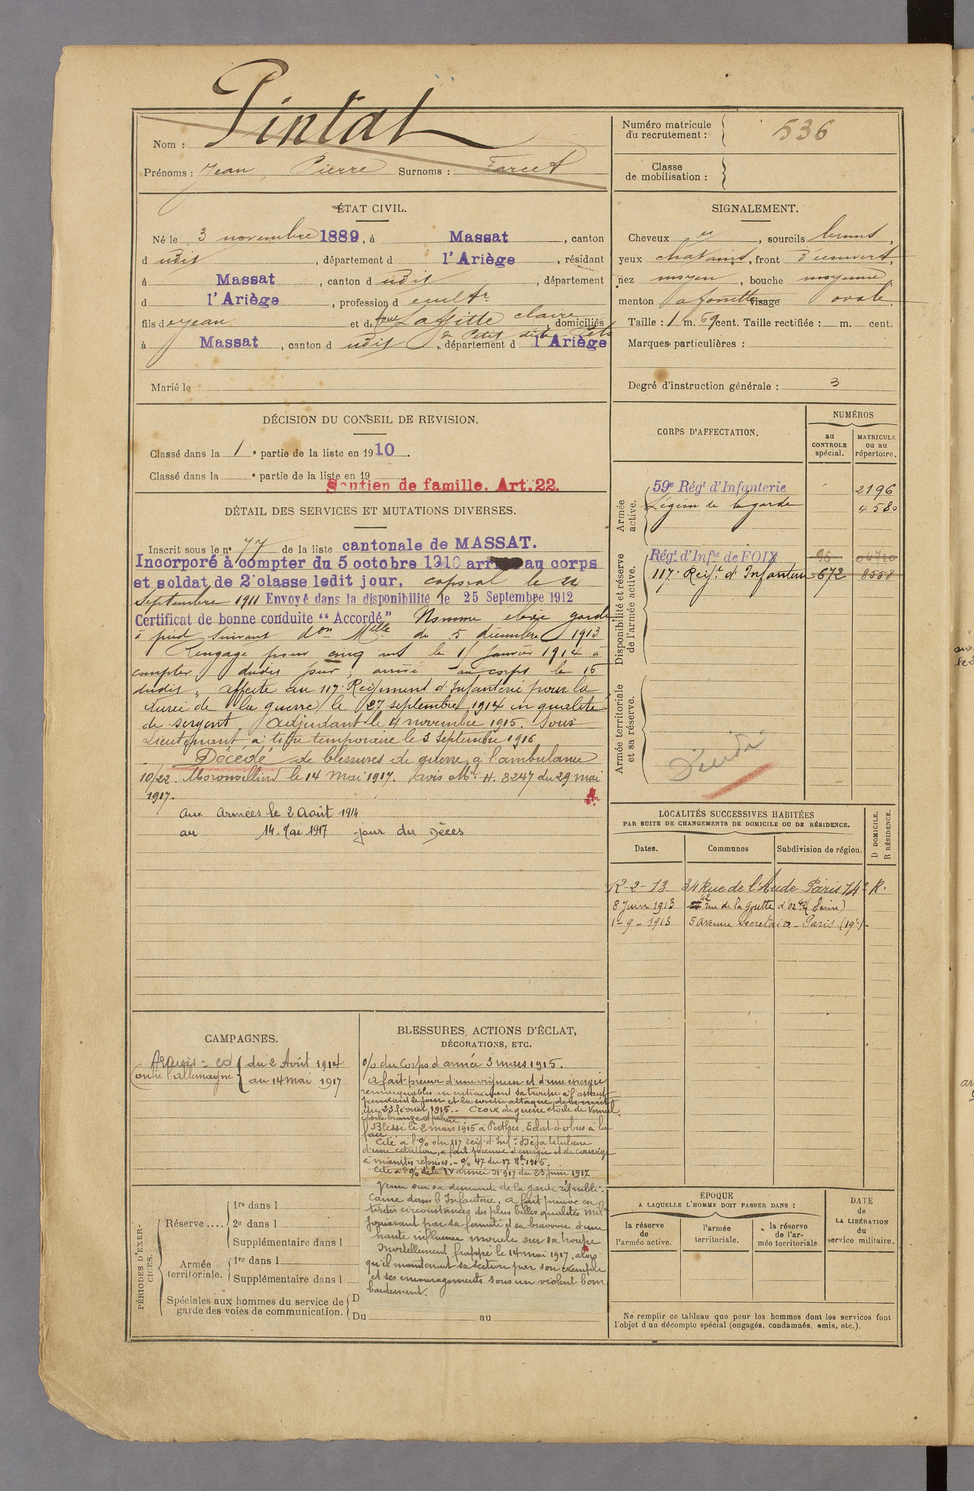 Nom : Pintat
Prénoms : Jean Pierre Surnoms : Farcet
Numéro matricule du recrutement : 536
Classe de mobilisation :
ÉTAT CIVIL.
Né le 3 novembre 1889, à Massat, canton
d udit, département d l'Ariège, résidant
à Massat, canton d udit, département
d l'Ariège, profession d
fils de Jean et de Laffitte Claire, domiciliés
à Massat, canton d udit, département d l'Ariège
Marié le
SIGNALEMENT.
Cheveux et, sourcils bruns,
yeux chatains, front découvert,
nez moyen, bouche moyenne
menton à fossette visage ovale
Taille : 1 m. 69 cent. Taille rectifiée : m. cent.
Marques particulières :
Degré d'instruction générale : 3
DÉCISION DU CONSEIL DE REVISION.
Classé dans la 1e partie de la liste en 1910.
Classé dans la e partie de la liste en 19
Soutien de famille. Art. 22.
DÉTAIL DES SERVICES ET MUTATIONS DIVERSES.
Inscrit sous le n° 77 de la liste cantonale de MASSAT.
Incorporé à compter du 5 octobre 1910 arrivé au corps
et soldat de 2e classe ledit jour, caporal le 22
Septembre 1911 Envoyé dans la disponibilité le 25 Septembre 1912
Certificat de bonne conduite "Accordé" Nommé élève garde
à pied suivant don Mlle du 5 décembre 1913
Rengagé pour cinq ans le 11 janvier 1914 à
compter dudit jour, arrivé au corps le 15
dudit, affecté au 117 Régiment d'Infanterie pour la
durée de la guerre, le 27 septembre 1914 en qualité
de sergent. Adjudant le 4 novembre 1915. Sous
Lieutenant à titre temporaire le 3 Septembre 1916
Décédé de blessures de guerre à l'ambulance
10/22. Moronvilliers le 14 mai 1917. Avis Mel H. 8247 du 29 mai
1917.
aux armées le 2 août 1914
au 14 Mai 1917 jour du Décès
CORPS D'AFFECTATION.
NUMÉROS
au CONTROLE spécial.
MATRICULE ou au répertoire.
Armée active.
59e Régt d'Infanterie 2196
Légion de la garde 4580
Disponibilité et réserve de l'armée active.
Régt d'Infie de FOIX
117 Régt d'Infanterie 672 8558
Armée territoriale et sa réserve.
LOCALITÉS SUCCESSIVES HABITÉES
PAR SUITE DE CHANGEMENTS DE DOMICILE OU DE RÉSIDENCE.
Dates. Communes Subdivision de région. D DOMICILE. R RÉSIDENCE.
2-13 34 Rue de l'Aude Paris 14e R.
8 Juin 1913 42 rue de la Goutte d'or (Seine)
1-9-1913 5 avenue Secrétan Paris (19e)
CAMPAGNES.
contre l'Allemagne du 2 Août 1914
au 14 mai 1917
BLESSURES, ACTIONS D'ÉCLAT,
DÉCORATIONS, ETC.
O/ du Corps d'armée 3 mars 1915.
a fait preuve d'une vigueur et d'une énergie
remarquables en entrainant sa troupe à l'assaut
pendant le jour et la contre attaque de la nuit
du 23 février 1915. Croix de guerre étoile de Vermeil
Blessé le 2 mars 1915 à Perthes. Eclat d'obus à la
face.
Cité à l'O/ du 117 régt d'Inf. Déjà titulaire
d'une citation, a fait preuve d'énergie et de courage
à maintes reprises. O/ 47 du 17 8bre 1915.
Cité à l'O/ de la IV armée N 917 du 23 juin 1917
Venu sur sa demande de la garde républi-
caine dans l'Infanterie, a fait preuve en
toutes circonstances des plus belles qualités milres
jouissant par sa fermeté et sa bravoure d'une
haute influence morale sur sa troupe
Mortellement frappé le 14 mai 1917, alors
qu'il maintenait sa section par son exemple
et ses encouragements sous un violent bom-
bardement.
PÉRIODES D'EXERCICES.
Réserve.... 1re dans l
2e dans l
Supplémentaire dans l
Armée territoriale. 1re dans l
Supplémentaire dans l
Spéciales aux hommes du service de garde des voies de communication. D
Du au
ÉPOQUE
A LAQUELLE L'HOMME DOIT PASSER DANS :
la réserve de l'armée active.
l'armée territoriale.
la réserve de l'armée territoriale
DATE de LA LIBÉRATION du service militaire.
Ne remplir ce tableau que pour les hommes dont les services font
l'objet d'un décompte spécial (engagés, condamnés, omis, etc.).